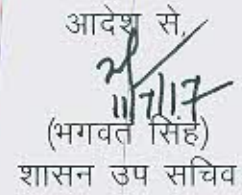 आदेश से,
11/7/17
(भगवत सिंह)
शासन उप सचिव